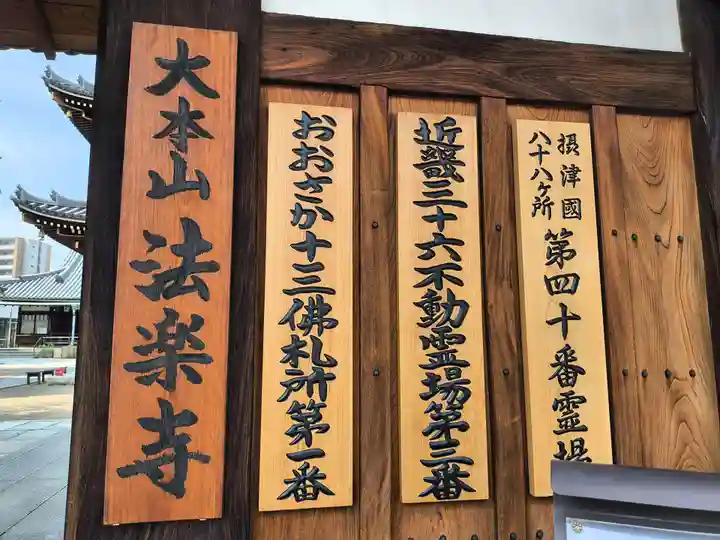 大本山法楽寺
おおさか十三佛札所第一番
近畿三十六不動霊場第三番
摂津國
八十八ヶ所
第四十番霊場